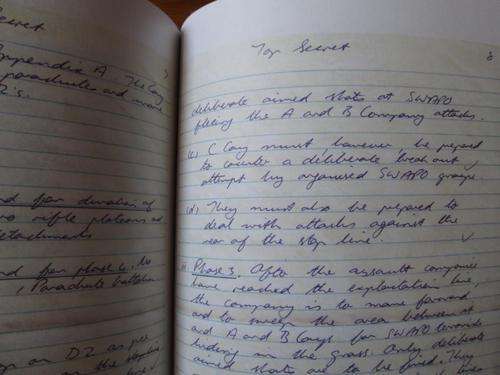 Secret
Appendix A. The Coy
parachutes and more
Z's.
and for duration of
two rifle platoons and
detachments
and for phase 4. No
Parachute battalion
on DZ as per
Top Secret
deliberate aimed shots at SWAPO
fleeing the A and B Company attacks.
(c) C Coy must, however, be prepared
to counter a deliberate break out
attempt by organised SWAPO groups.
(d) They must also be prepared to
deal with attacks against the
rear of the stop line.
Phase 3. After the assault companies
have reached the exploitation line,
the company is to move forward
and to sweep the area between it
and A and B Coys for SWAPO terrorists
hiding in the grass. Only deliberate
aimed shots are to be fired. They